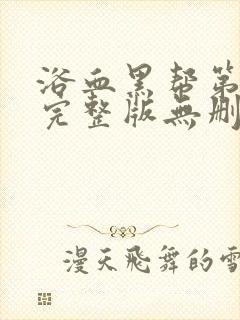 浴血黑帮第
完整版無删
漫天飛舞的雪